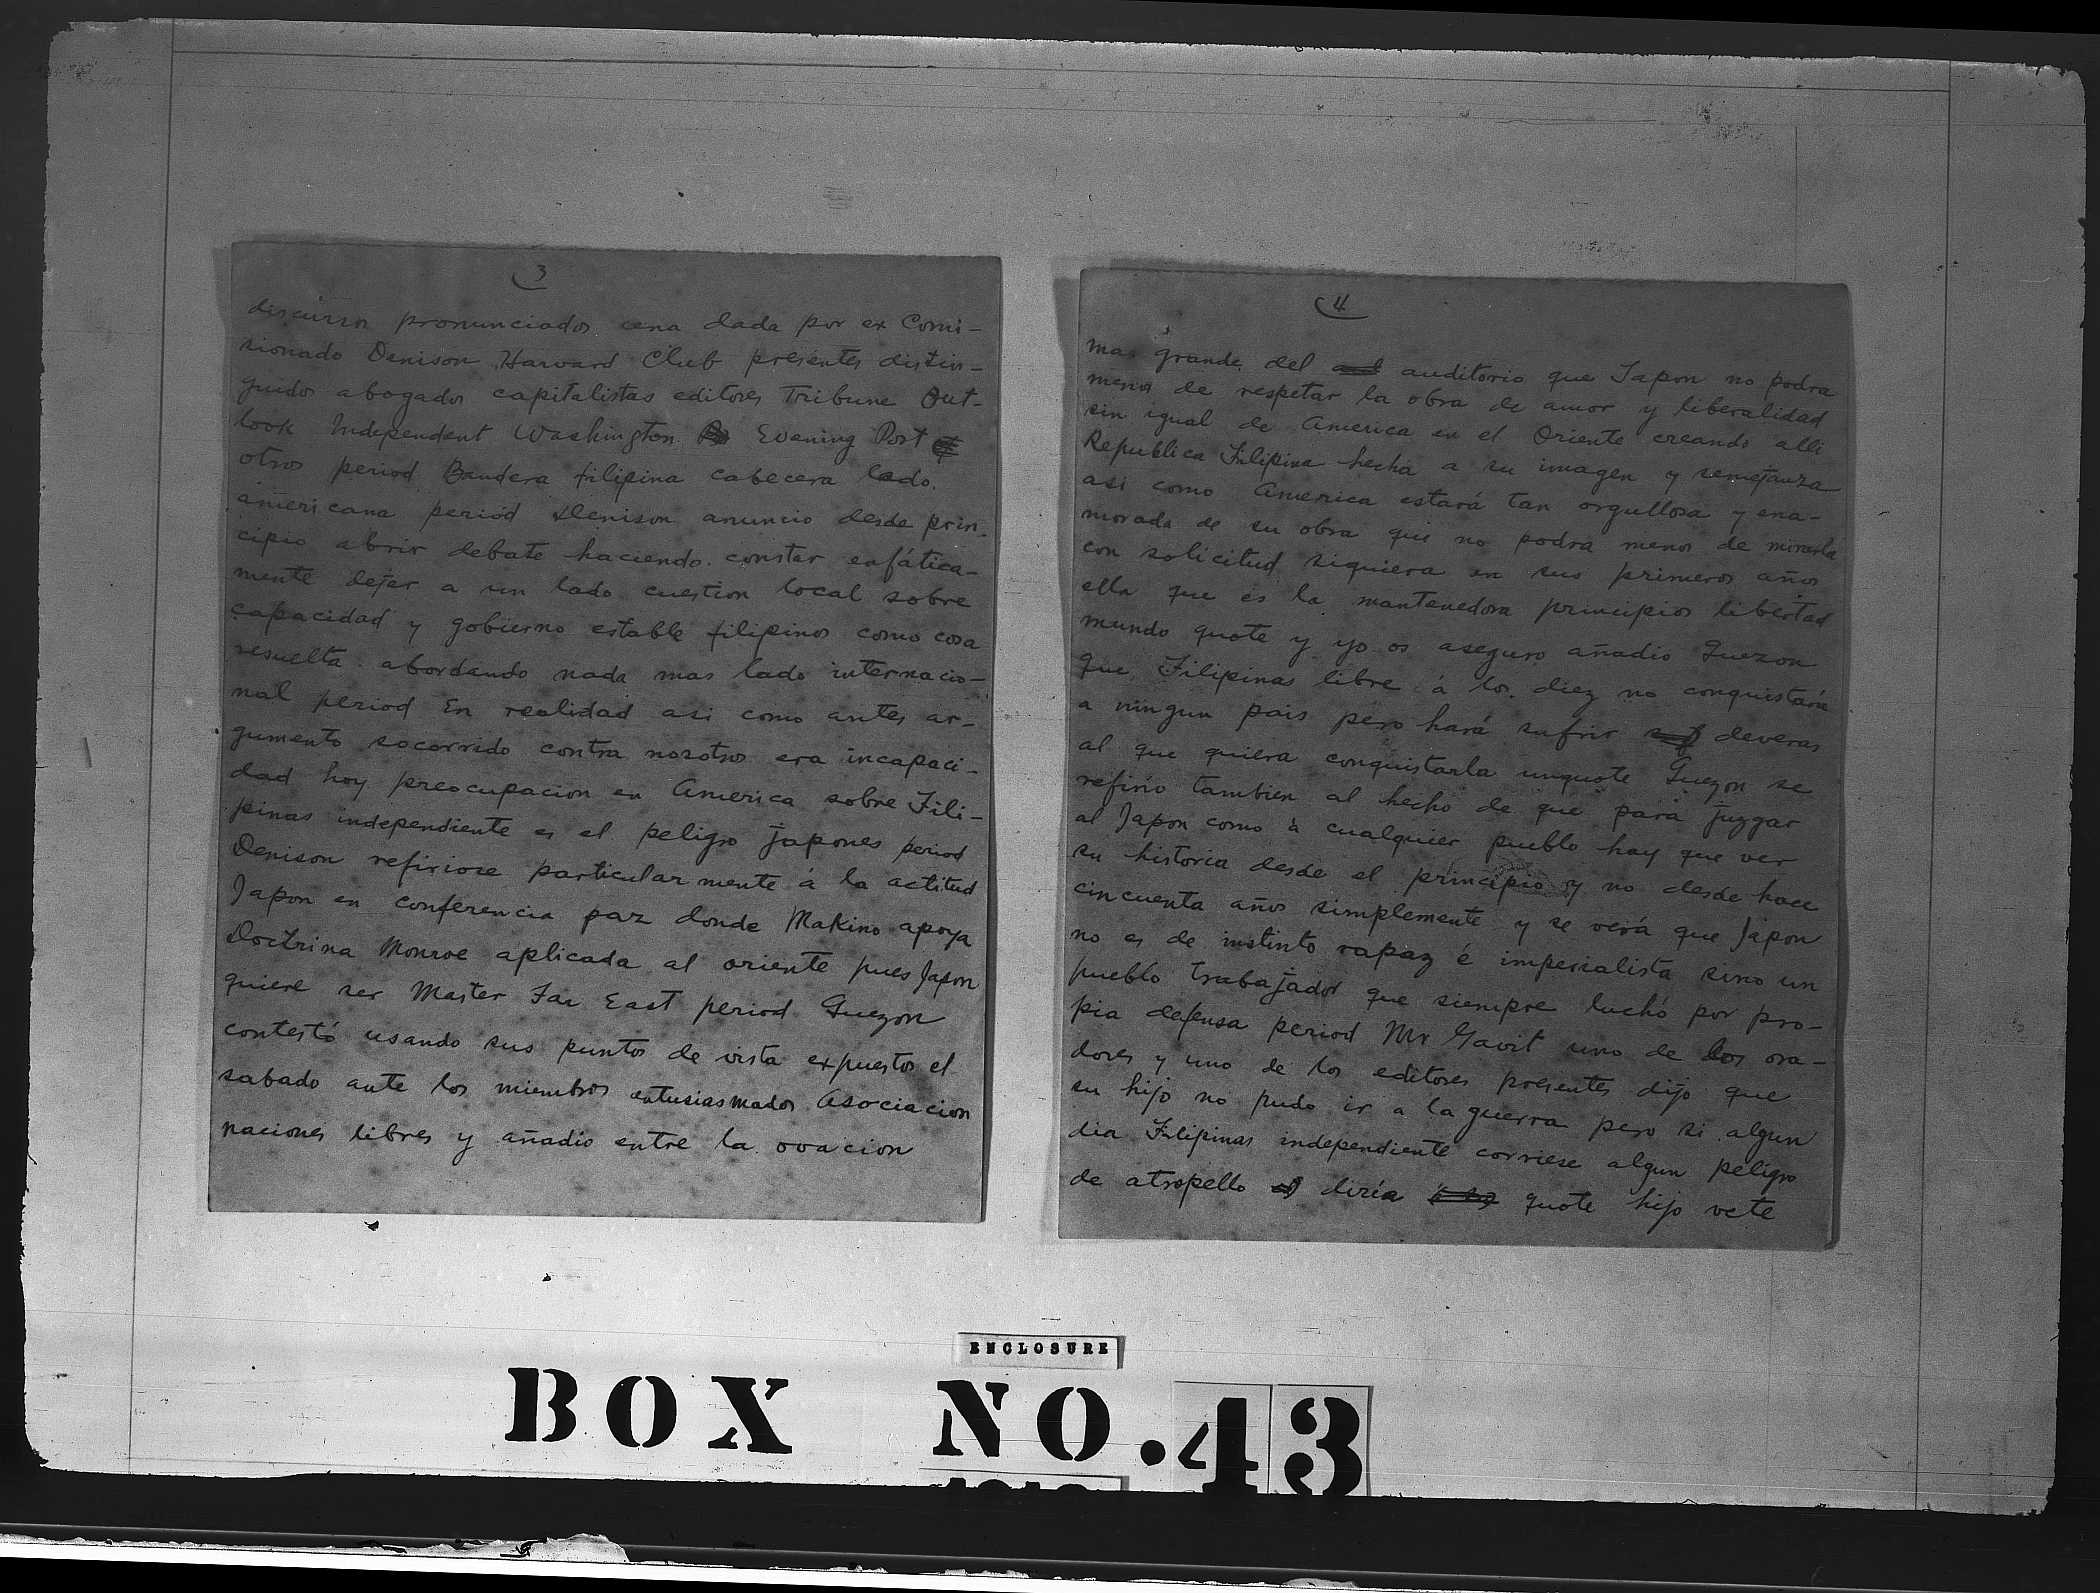 3
discursos pronunciados cena dada por ex Comi-
sionado Denison Harvard Club presentes distin-
guidos abogados capitalistas editores Tribune Out-
look Independent Washington Evening Post
otros period Bandera filipina cabecera lado
americana period Denison anuncio desde prin-
cipio abrir debate haciendo constar enfática-
mente dejar a un lado cuestion local sobre
capacidad y gobierno estable filipinos como cosa
resuelta abordando nada mas lado internacio-
nal period En realidad asi como antes ar-
gumento socorrido contra nosotros era incapaci-
dad hoy preocupacion en America sobre Fili-
pinas independiente es el peligro japones period
Denison refiriose particularmente á la actitud
Japon en conferencia paz donde Makino apoya
Doctrina Monroe aplicada al oriente pues Japon
quiere ser Master Far East period Quezon
contestó usando sus puntos de vista expuestos el
sabado ante los miembros entusiasmados Asociacion
naciones libres y añadio entre la ovacion
4
mas grande del auditorio que Japon no podra
menos de respetar la obra de amor y liberalidad
sin igual de America en el Oriente creando alli
Republica Filipina hecha a su imagen y semejanza
asi como America estará tan orgullosa y ena-
morada de su obra que no podra menos de mirarla
con solicitud siquiera en sus primeros años
ella que es la mantenedora principios libertad
mundo quote y yo os aseguro añadio Quezon
que Filipinas libre á los diez no conquistará
a ningun pais pero hará sufrir deveras
al que quiera conquistarla unquote Quezon se
refirio tambien al hecho de que para juzgar
al Japon como á cualquier pueblo hay que ver
su historia desde el principio y no desde hace
cincuenta años simplemente y se verá que Japon
no es de instinto rapaz é imperialista sino un
pueblo trabajador que siempre luchó por pro-
pia defensa period Mr Gavit uno de los ora-
dores y uno de los editores presentes dijo que
su hijo no pudo ir a la guerra pero si algun
dia Filipinas independiente corriese algun peligro
de atropello diria quote hijo vete
ENCLOSURE
BOX NO. 43